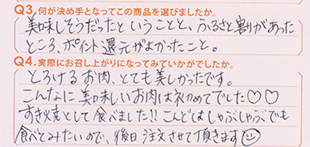 Q3.何が決め手となってこの商品を選びましたか。
美味しそうだったということと、ふるさと割があった
ところ、ポイント還元がよかったこと。
Q4.実際にお召し上がりになってみていかがでしたか。
とろけるお肉、とても美しかったです。
こんなに美味しいお肉は初めてでした♡♡
すき焼きとして食べました!!こんどはしゃぶしゃぶでも
食べてみたいので、後日注文させて頂きます☺